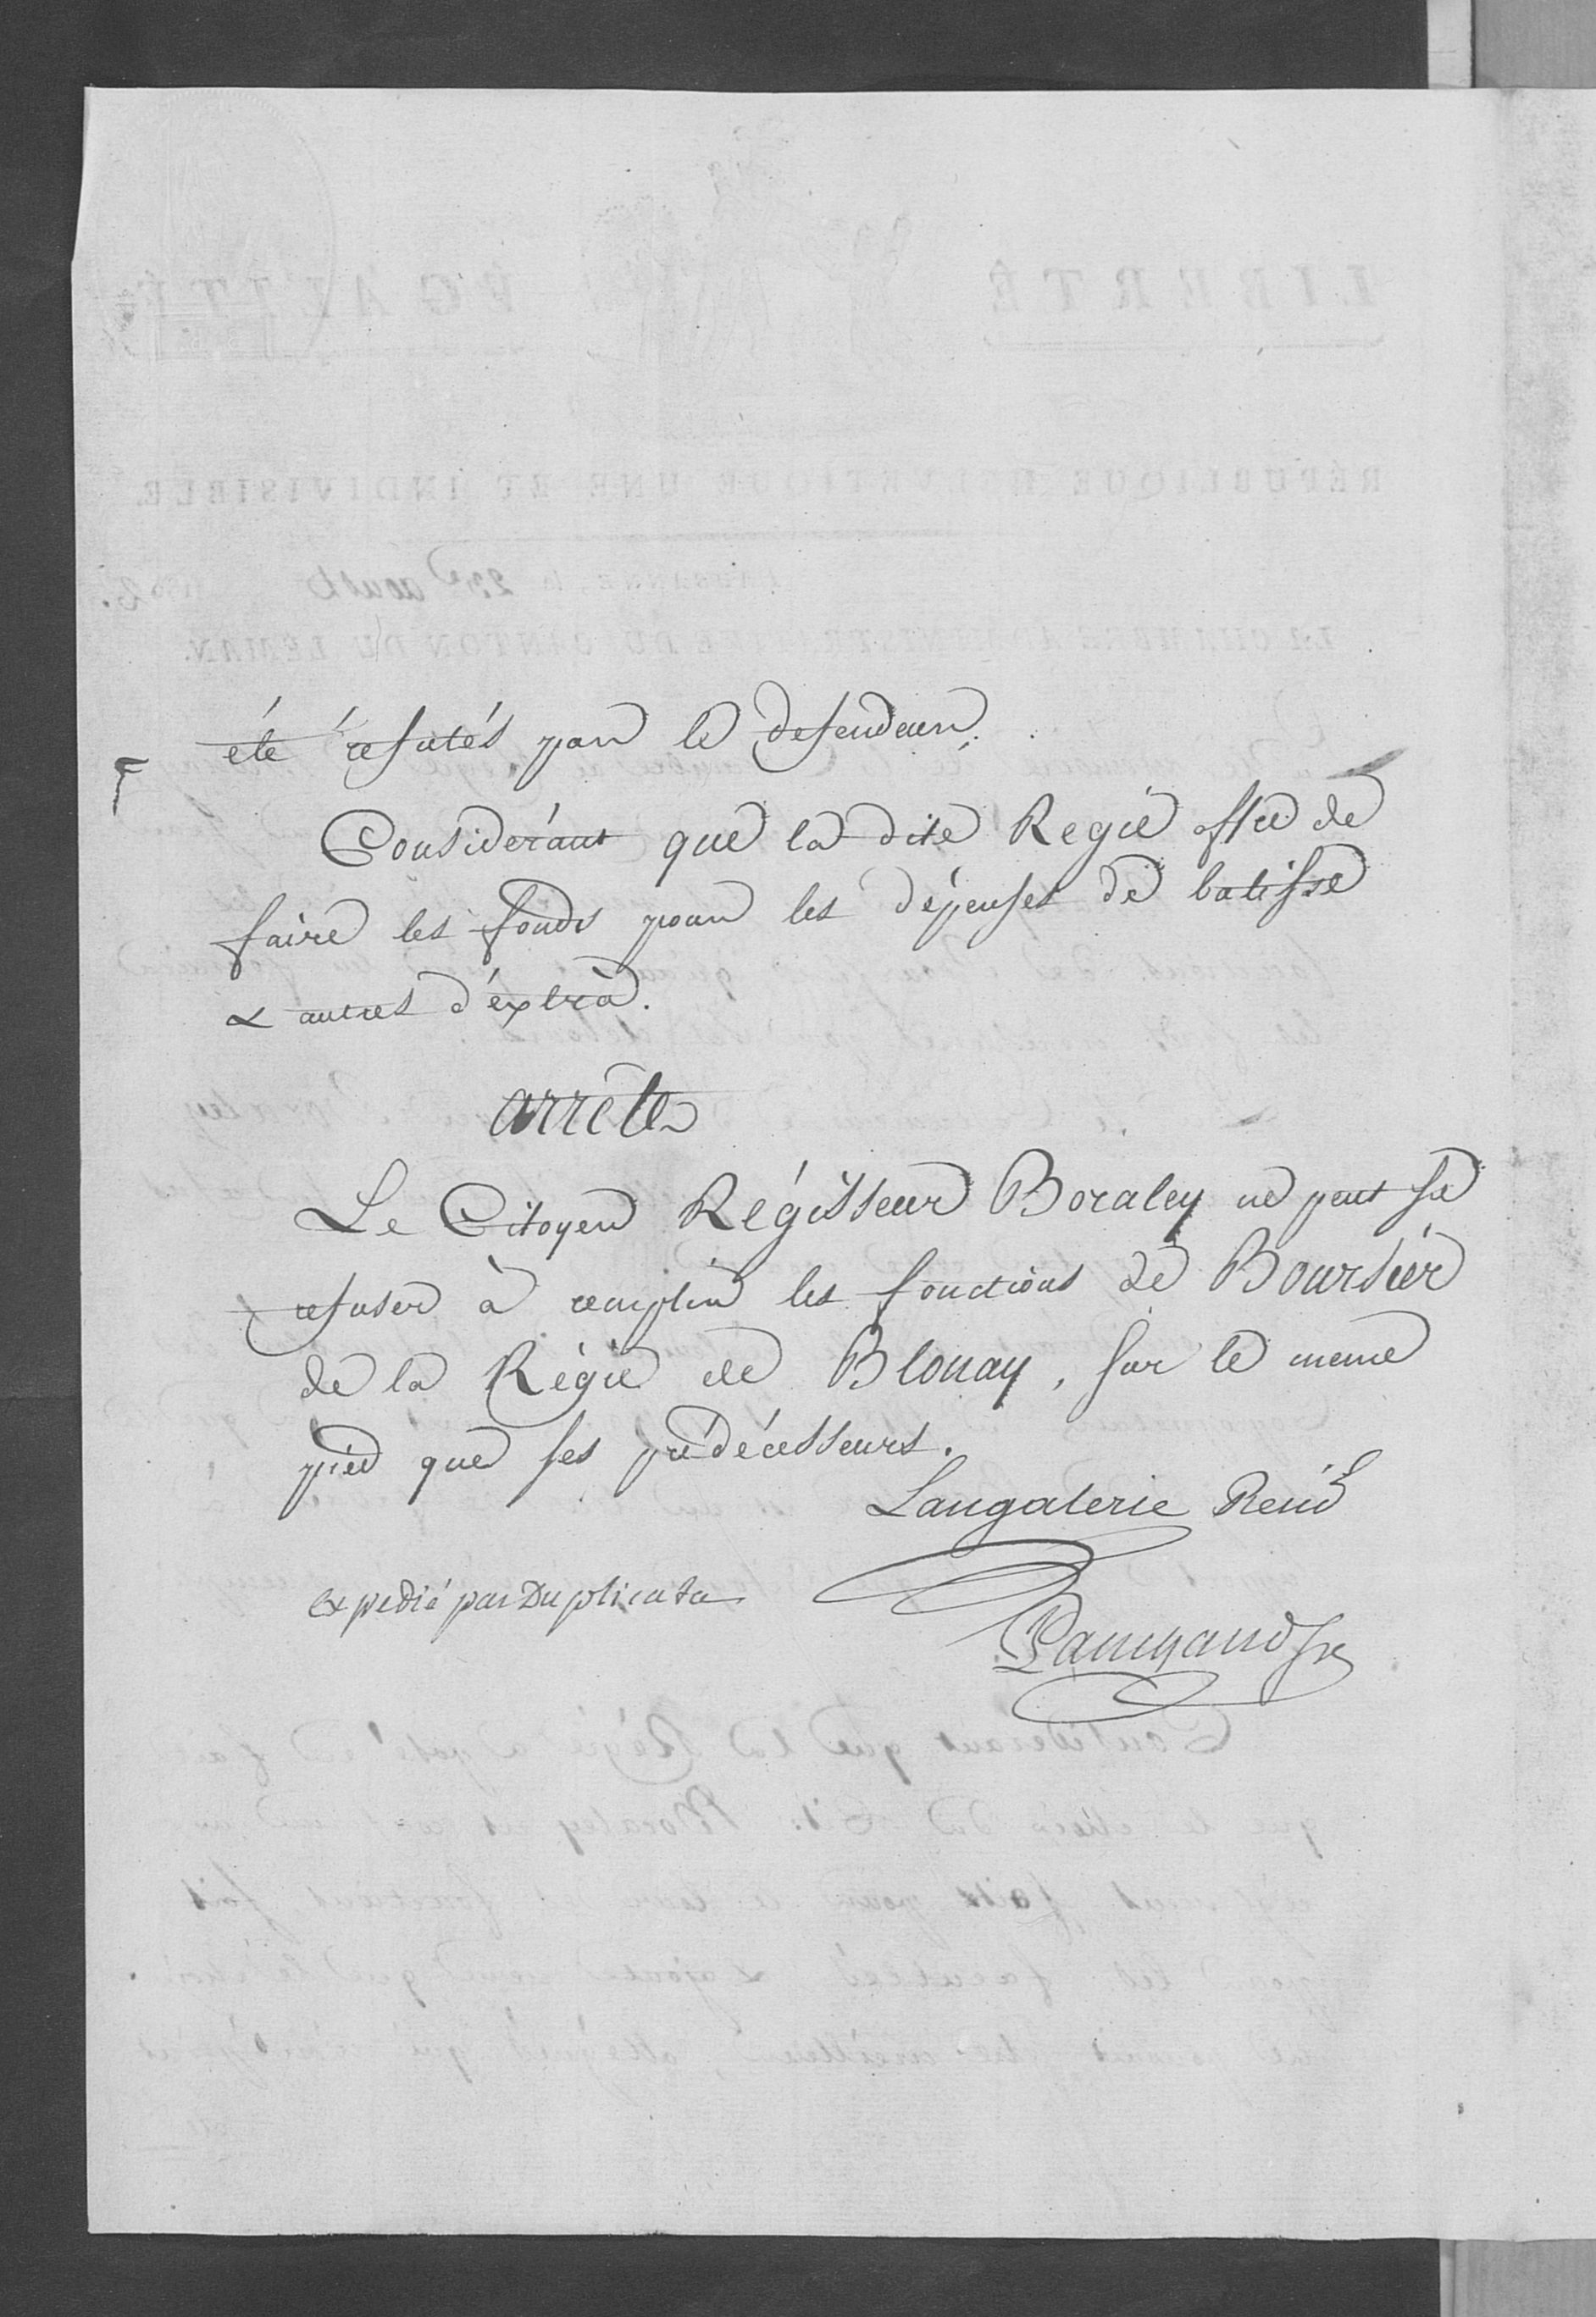 été refutés par le defendeur.
Considerant que la dite Regie offre de
faire les fonds pour les dépenses de batisse
& autres d'éxtrà.
arrête
Le Citoyen Régisseur Boraley ne peut se
refuser à remplir les fonctions de Boursier
de la Régie de Blonay, sur le meme
pied que ses prédécesseurs.
Langalerie
expedié par Duplicata